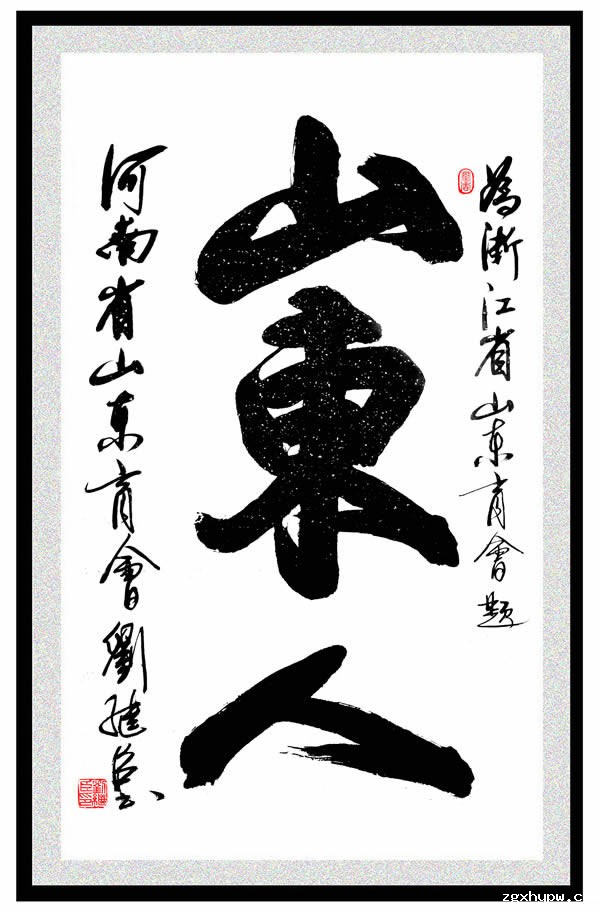 為浙江省山东商會题
山東人
河南省山东商會劉继臣
zgxhupw.c